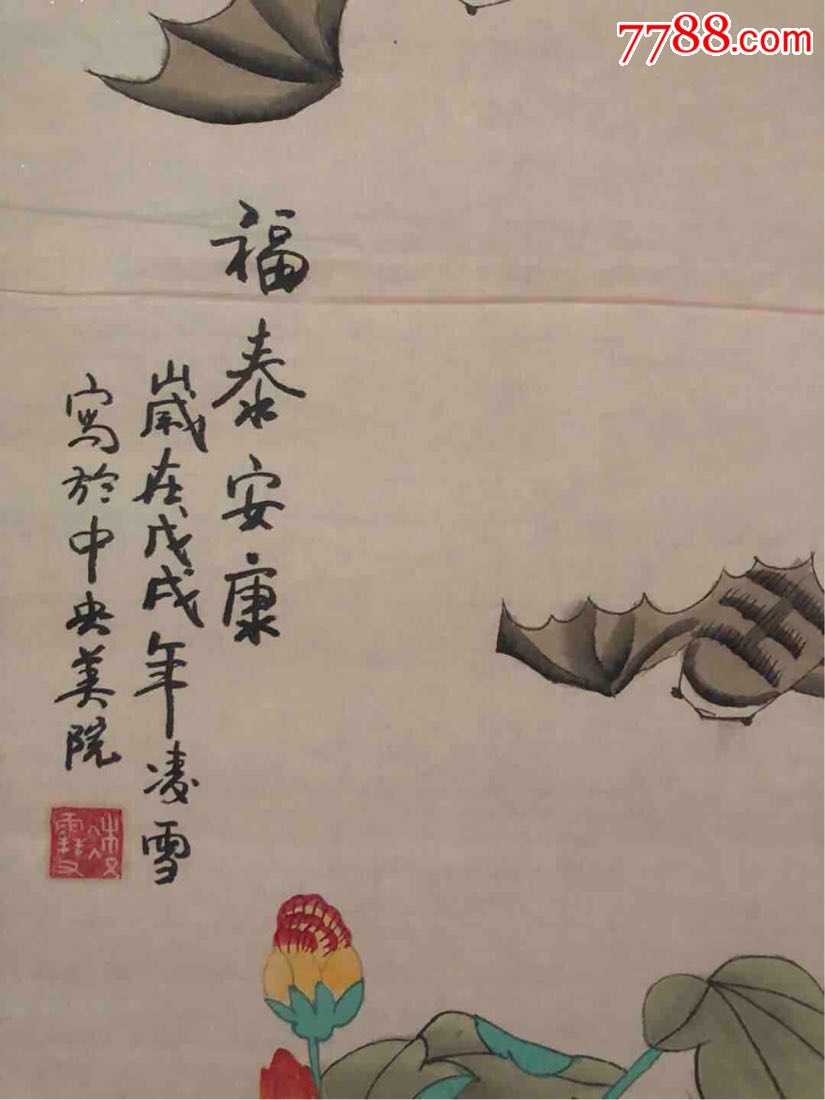 7788.com
福泰安康
歲在戊戌年凌雪
寫於中央美院